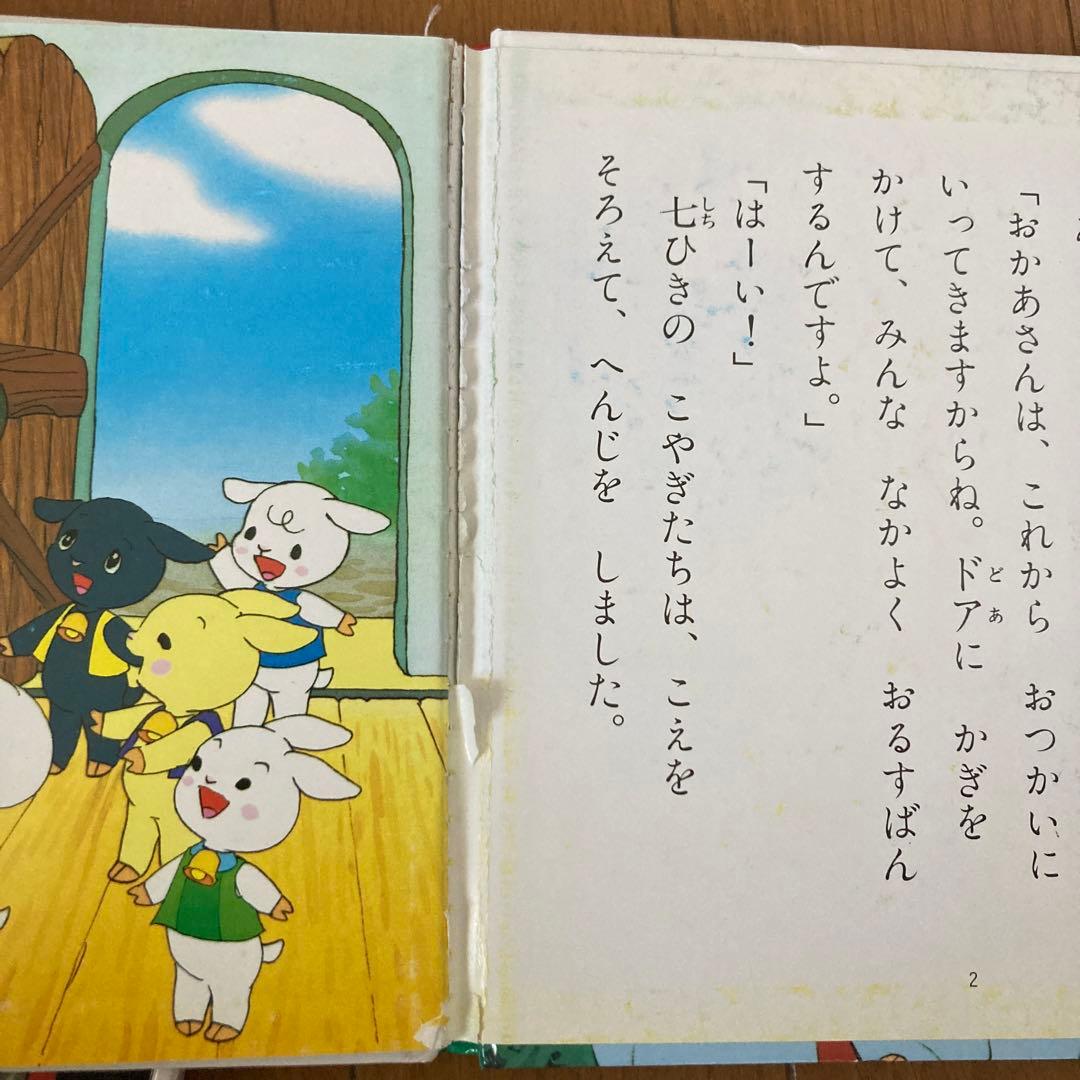 「おかあさんは、これから おつかいに
いってきますからね。ドアに かぎを
どあ
かけて、みんな なかよく おるすばん
するんですよ。」
「はーい！」
七ひきの こやぎたちは、こえを
しち
そろえて、へんじを しました。
2